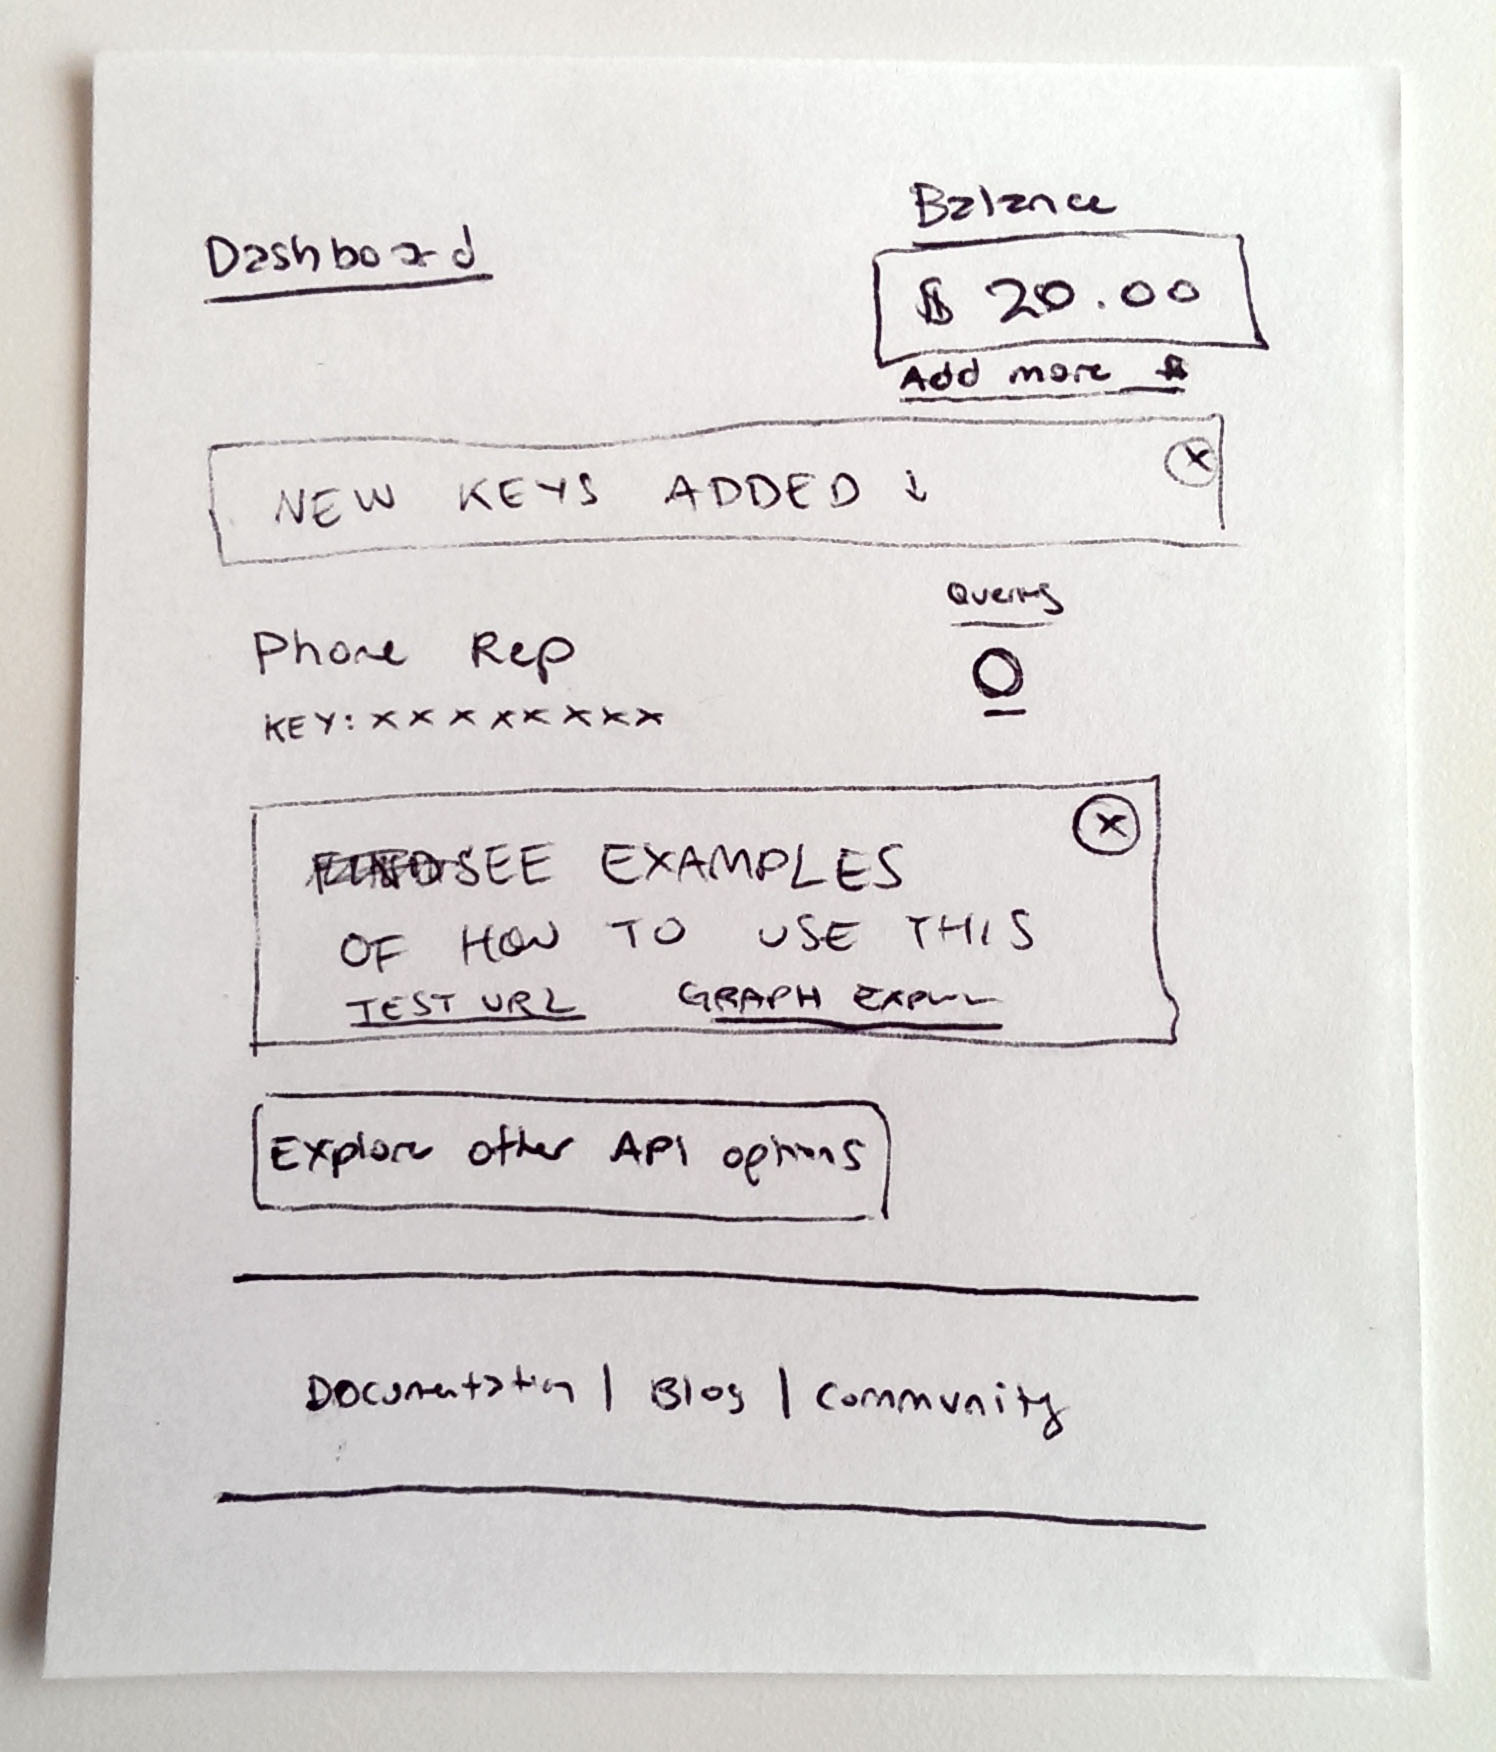 Dashboard
Balance
$ 20.00
Add more $
NEW KEYS ADDED ↓
X
Queries
Phone Rep
0
KEY: XXXXXXXX
X
SEE EXAMPLES
OF HOW TO USE THIS
TEST URL GRAPH
Explore other API options
Documentation | Blog | Community